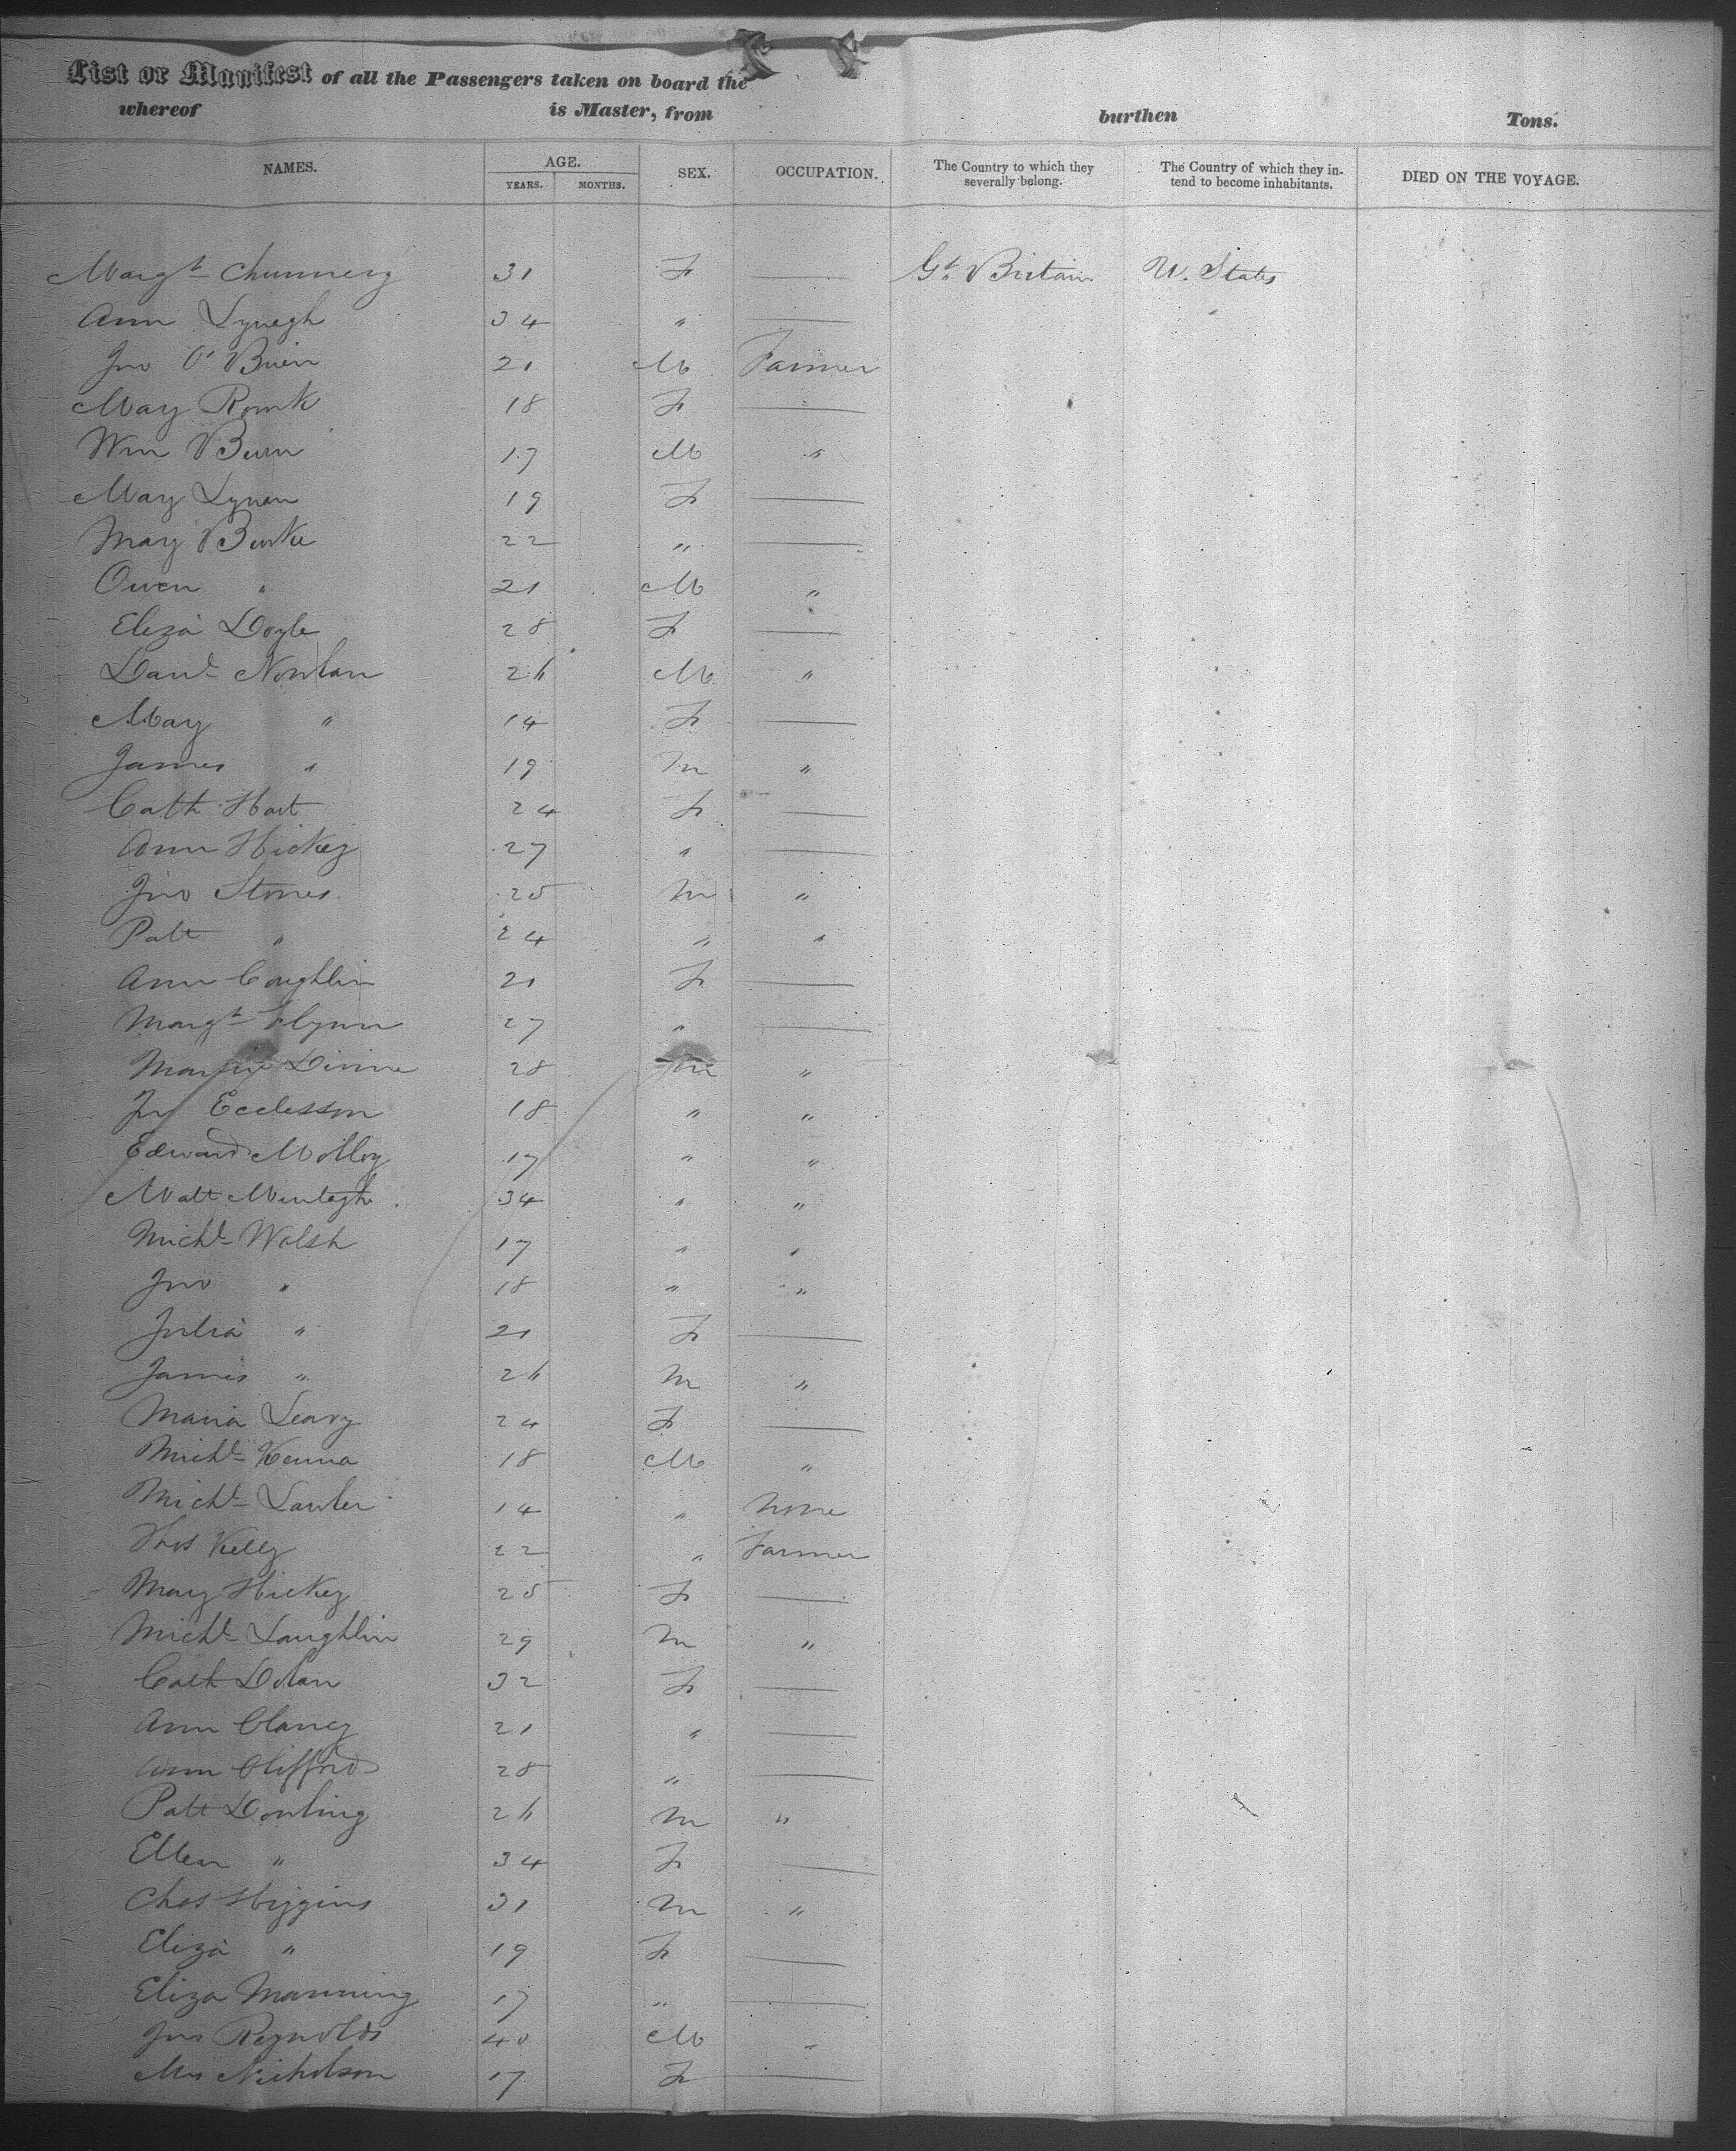 List or Manifest of all the Passengers taken on board the
whereof is Master, from burthen Tons.
NAMES. AGE. YEARS. MONTHS. SEX. OCCUPATION. The Country to which they severally belong. The Country of which they intend to become inhabitants. DIED ON THE VOYAGE.
Margt 31 F — Gt. Britain U. States
Ann Lynagh 34 " —
Jno O'Brien 21 M Farmer
Mary 18 F —
Wm 17 M "
Mary 19 F —
Mary Burke 22 " —
Owen " 21 M "
Eliza Doyle 28 F —
Danl Nowlan 26 M "
Mary " 14 F —
James " 19 M "
Cath Hart 24 F —
Ann Hickey 27 " —
Jno Stones 25 M "
Patt " 24 " "
Ann Coughlin 21 F —
Margt Flynn 27 " —
Divine 28 M "
Ecclesson 18 " "
Edward Molloy 17 " "
Matt 34 " "
Michl Walsh 17 " "
Jno " 18 " "
Julia " 21 F —
James " 26 M "
Maria Leary 24 F —
Michl Kenna 18 M "
Michl Lawler 14 " None
Thos Kelly 22 " Farmer
Mary Hickey 25 F —
Michl Laughlin 29 M "
Cath Dolan 32 F —
Ann Clancy 21 " —
Ann Clifford 28 " —
Patt Dowling 26 M "
Ellen " 34 F —
Chas Higgins 31 M "
Eliza " 19 F —
Eliza Manning 17 " —
Jno Reynolds 40 M "
Nicholson 17 F —